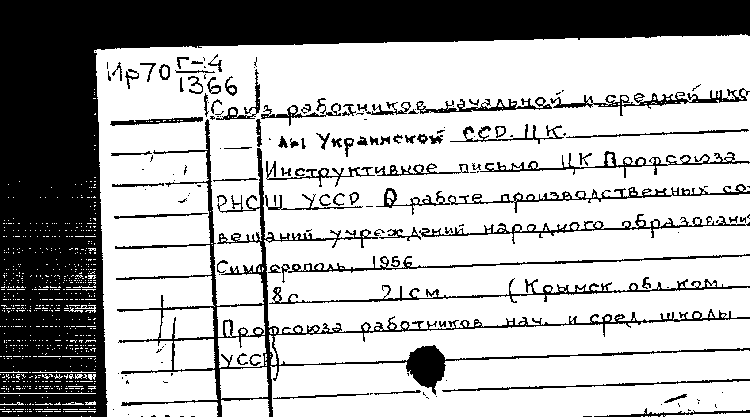 Ир70 Г-4
1366
Союз работников начальной и средней шко
лы Украинской ССР. ЦК.
Инструктивное письмо ЦК Профсоюза
РНСШ УССР О работе производственных со
вещаний учреждений народного образования
Симферополь, 1956.
8 с. 21 см. (Крымск. обл. ком.
Профсоюза работников нач. и сред. школы
УССР).